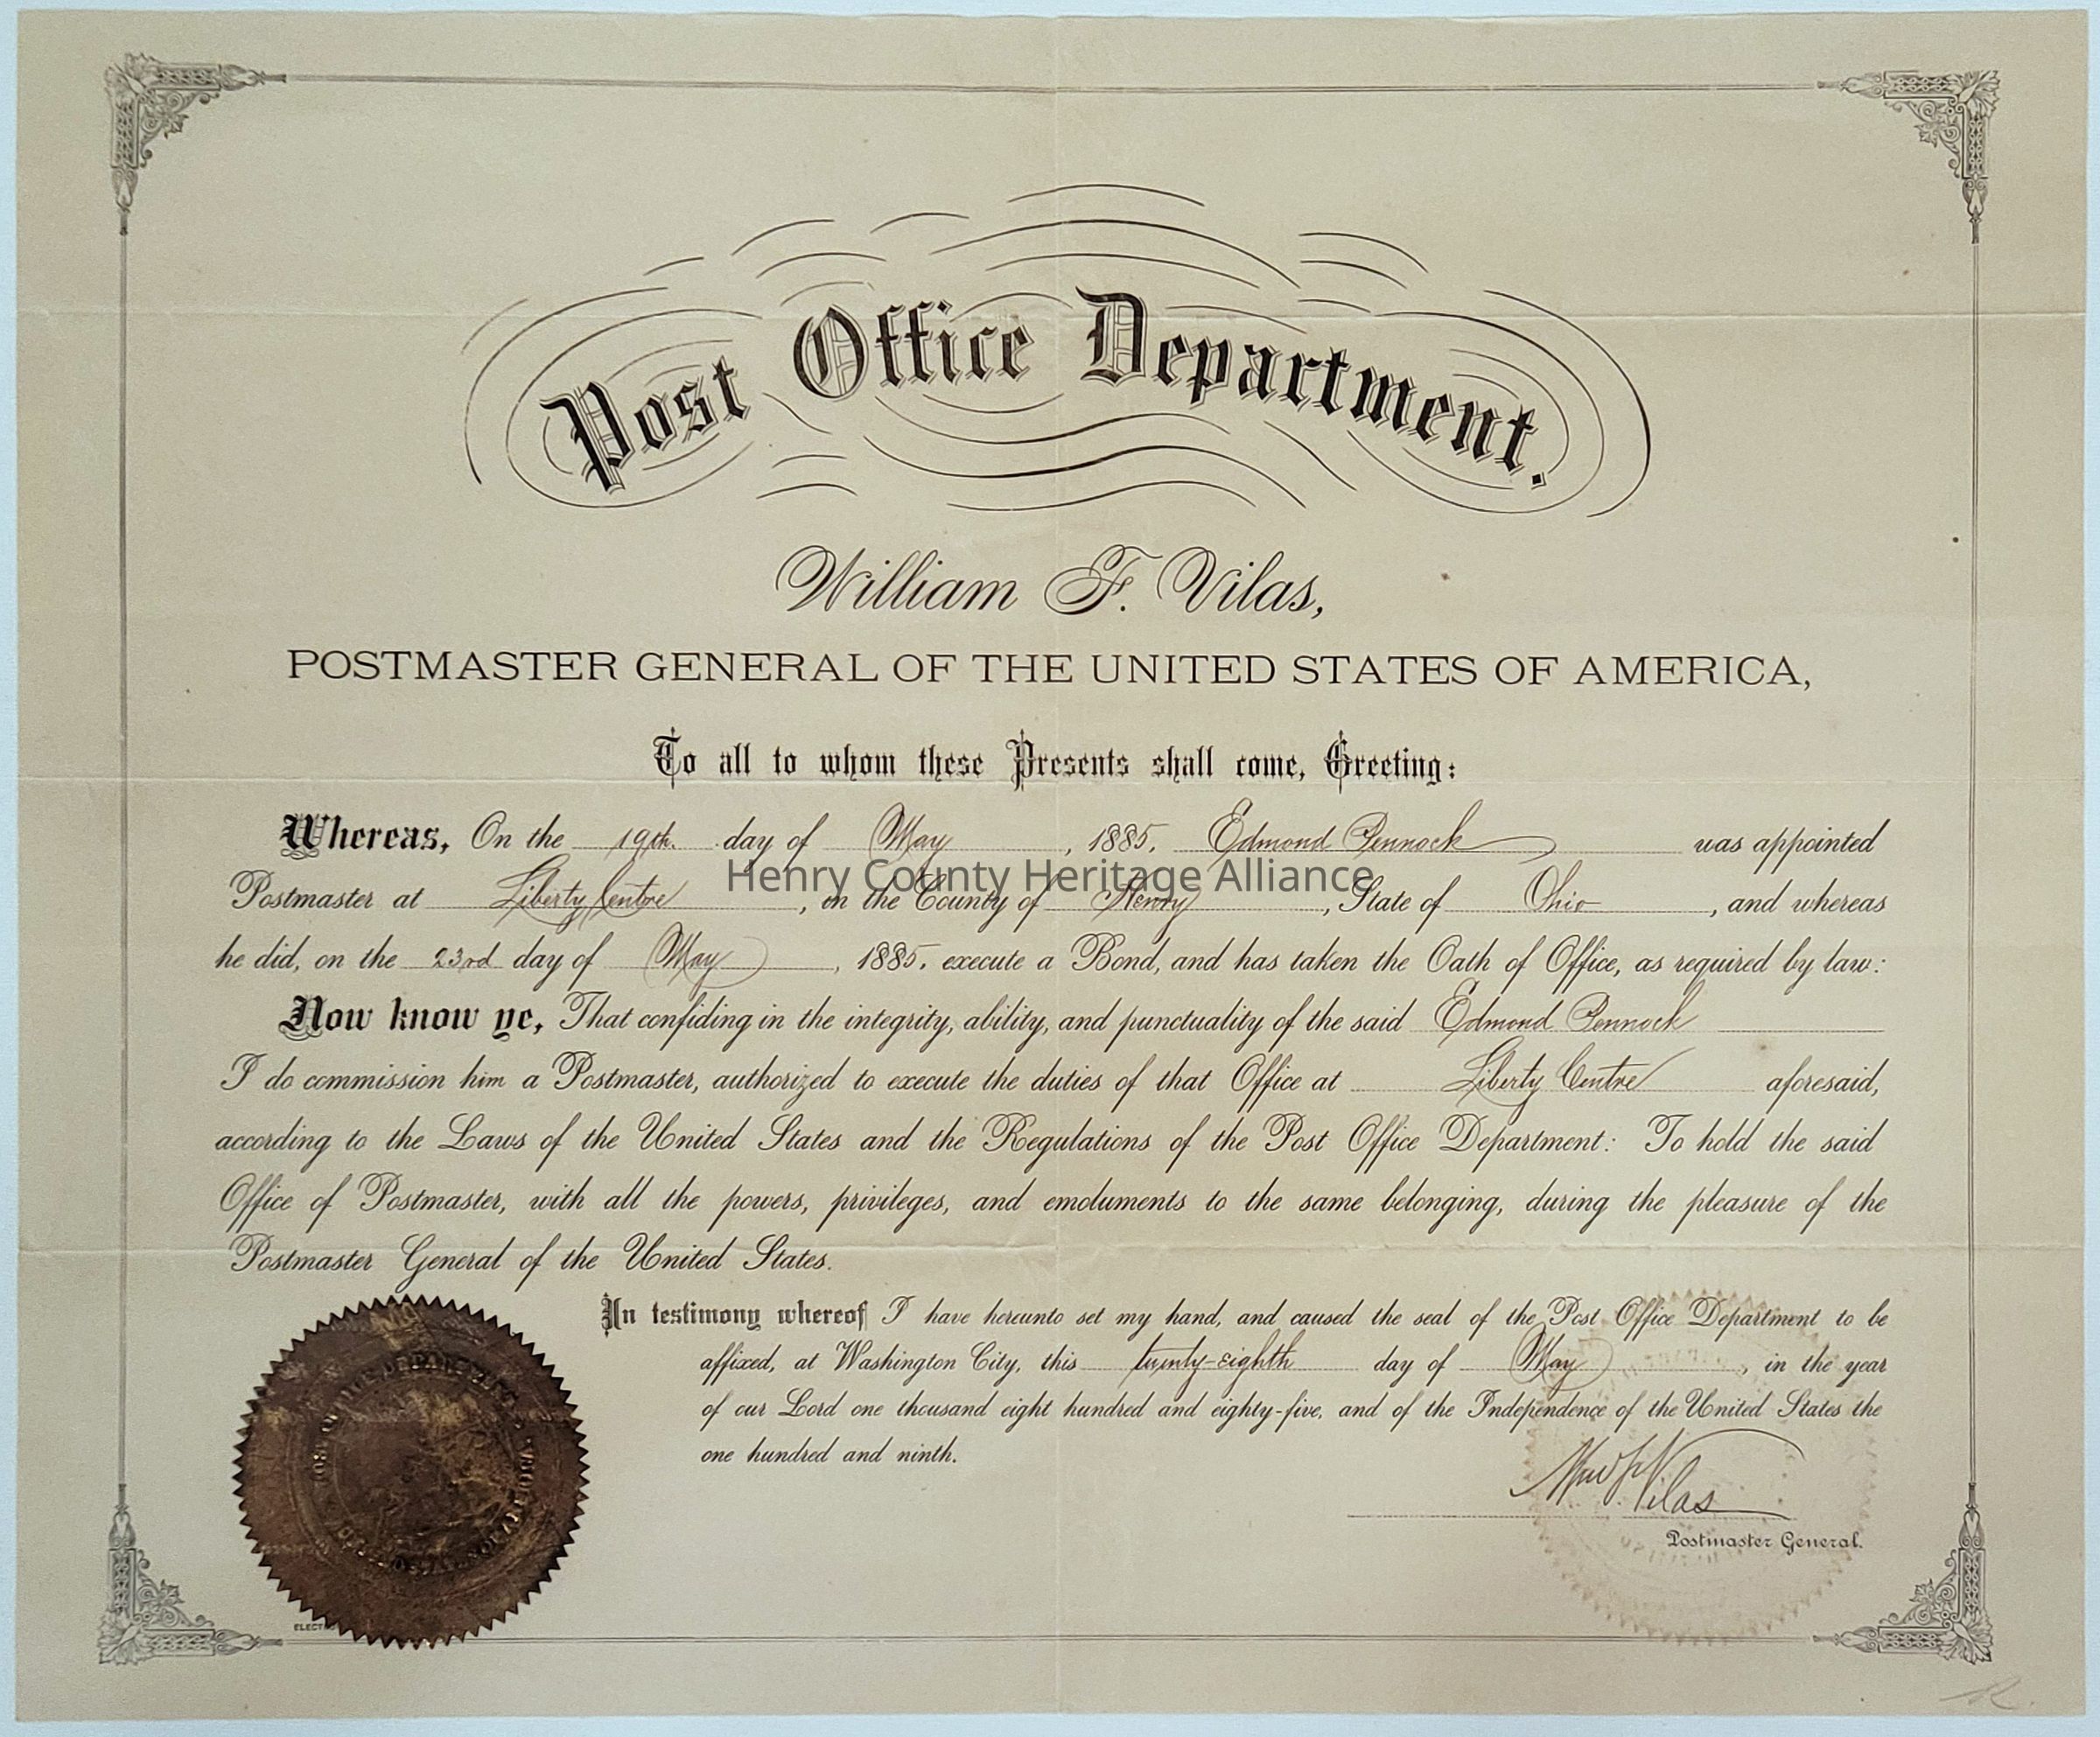 Post Office Department.
William F. Vilas,
POSTMASTER GENERAL OF THE UNITED STATES OF AMERICA,
To all to whom these Presents shall come, Greeting:
Whereas, On the 19th. day of May, 1885, Edmond Pennock was appointed
Henry County Heritage Alliance
Postmaster at Liberty Centre, in the County of Henry, State of Ohio, and whereas
he did, on the 23rd day of May, 1885, execute a Bond, and has taken the Oath of Office, as required by law:
Now know ye, That confiding in the integrity, ability, and punctuality of the said Edmond Pennock
I do commission him a Postmaster, authorized to execute the duties of that Office at Liberty Centre aforesaid,
according to the Laws of the United States and the Regulations of the Post Office Department: To hold the said
Office of Postmaster, with all the powers, privileges, and emoluments to the same belonging, during the pleasure of the
Postmaster General of the United States.
In testimony whereof I have hereunto set my hand, and caused the seal of the Post Office Department to be
affixed, at Washington City, this twenty-eighth day of May, in the year
of our Lord one thousand eight hundred and eighty-five, and of the Independence of the United States the
one hundred and ninth.
Wm F. Vilas
Postmaster General.